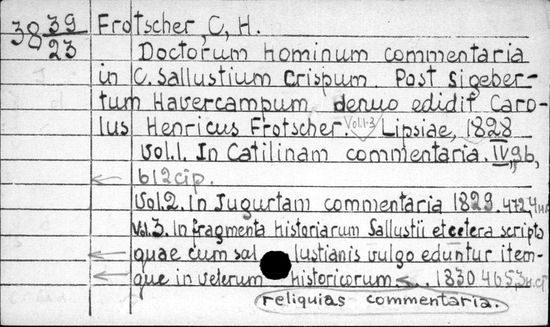 38 39/23 Frotscher, C, H.
Doctorum hominum commentaria
in C. Sallustium Crispum. Post Sigeber-
tum Havercampum denuo edidit Caro-
lus Henricus Frotscher. Vol.1-3 Lipsiae, 1828
Vol.1. In Catilinam commentaria. IV, 96,
612 cip.
Vol.2. In Jugurtam commentaria 1829. 472,4
Vol.3. In fragmenta historiarum Sallustii et cetera scripta
quae cum sal lustianis vulgo eduntur item-
que in veterum historicorum 1830 465,3
reliquias commentaria.